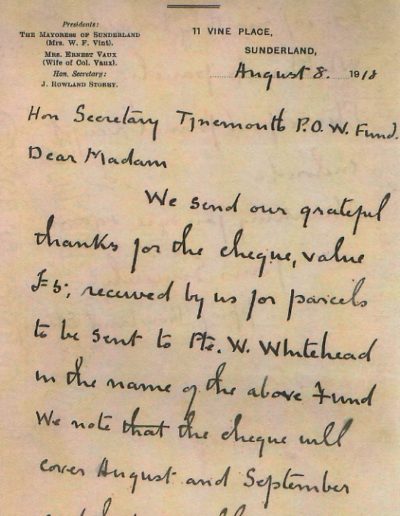 Presidents:
THE MAYORESS OF SUNDERLAND
(MRS. W. F. VINT).
MRS. ERNEST VAUX
(WIFE OF COL. VAUX).
Hon. Secretary:
J. ROWLAND STOREY.
11 VINE PLACE,
SUNDERLAND,
August 8. 1918
Hon Secretary Tynemouth P.O.W. Fund.
Dear Madam
We send our grateful
thanks for the cheque, value
£5; received by us for parcels
to be sent to Pte. W. Whitehead
in the name of the above Fund
We note that the cheque will
cover August and September